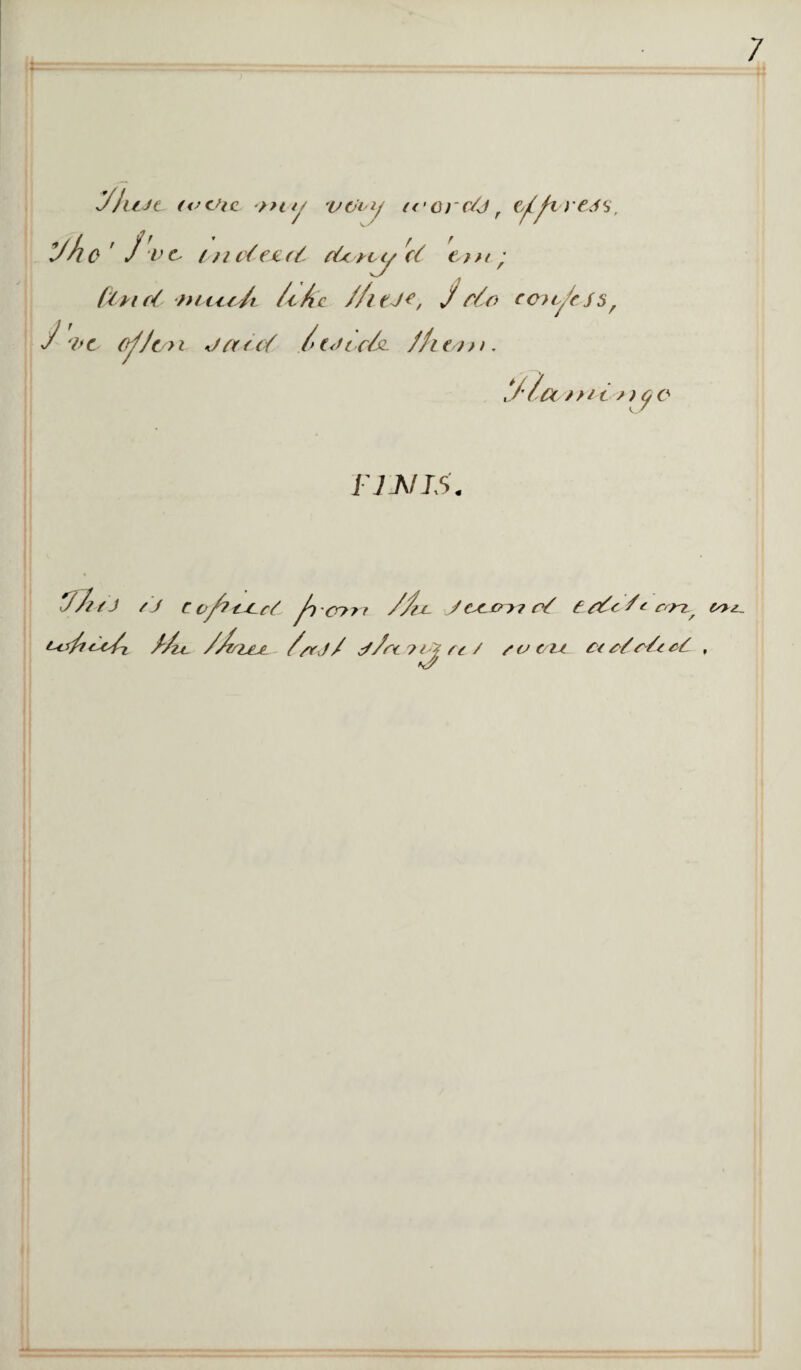 7
These were my very words, express,
Tho' I've indeed deny'd 'em;
And much like these, I do confess,
I've often said beside them.
Flamingo
FINIS.
This is copied from the second edition, in
which the three last stanzas were added.